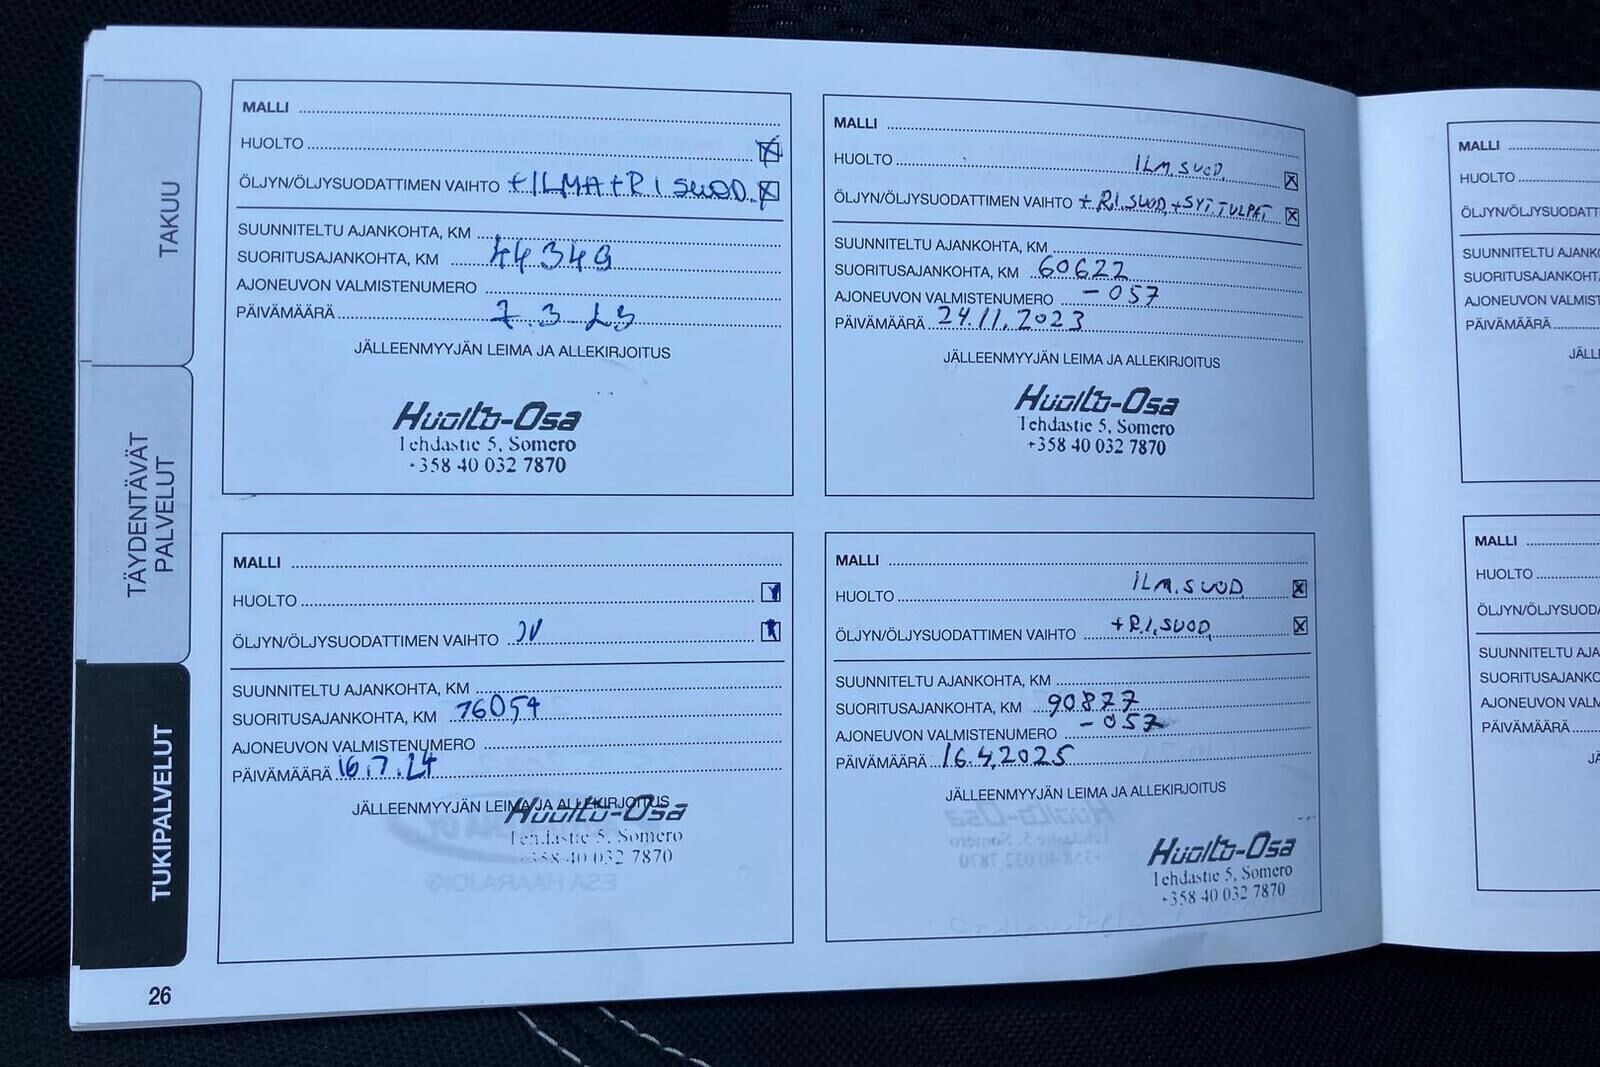 TAKUU
TÄYDENTÄVÄT
PALVELUT
TUKIPALVELUT
26
MALLI
HUOLTO
ÖLJYN/ÖLJYSUODATTIMEN VAIHTO +ILMA+RI SUOD.
SUUNNITELTU AJANKOHTA, KM
SUORITUSAJANKOHTA, KM 44349
AJONEUVON VALMISTENUMERO
PÄIVÄMÄÄRÄ 7.3.23
JÄLLEENMYYJÄN LEIMA JA ALLEKIRJOITUS
Huolto-Osa
Tehdastie 5, Somero
+358 40 032 7870
MALLI
HUOLTO ILM.SUOD.
ÖLJYN/ÖLJYSUODATTIMEN VAIHTO +RI.SUOD,+SYT.TULPAT
SUUNNITELTU AJANKOHTA, KM
SUORITUSAJANKOHTA, KM 60622
AJONEUVON VALMISTENUMERO -057
PÄIVÄMÄÄRÄ 24.11.2023
JÄLLEENMYYJÄN LEIMA JA ALLEKIRJOITUS
Huolto-Osa
Tehdastie 5, Somero
+358 40 032 7870
MALLI
HUOLTO
ÖLJYN/ÖLJYSUODATTIMEN VAIHTO
SUUNNITELTU AJANKOHTA, KM
SUORITUSAJANKOHTA, KM 76054
AJONEUVON VALMISTENUMERO
PÄIVÄMÄÄRÄ 16.7.24
JÄLLEENMYYJÄN LEIMA JA ALLEKIRJOITUS
Huolto-Osa
Tehdastie 5, Somero
+358 40 032 7870
MALLI
HUOLTO ILM.SUOD.
ÖLJYN/ÖLJYSUODATTIMEN VAIHTO +RI.SUOD.
SUUNNITELTU AJANKOHTA, KM
SUORITUSAJANKOHTA, KM 90877
AJONEUVON VALMISTENUMERO -057
PÄIVÄMÄÄRÄ 16.4.2025
JÄLLEENMYYJÄN LEIMA JA ALLEKIRJOITUS
Huolto-Osa
Tehdastie 5, Somero
+358 40 032 7870
MALLI
HUOLTO
ÖLJYN/ÖLJYSUODATT
SUUNNITELTU AJANKO
SUORITUSAJANKOHT
AJONEUVON VALMIST
PÄIVÄMÄÄRÄ
JÄLL
MALLI
HUOLTO
ÖLJYN/ÖLJYSUODA
SUUNNITELTU AJA
SUORITUSAJANKO
AJONEUVON VALM
PÄIVÄMÄÄRÄ
JÄ